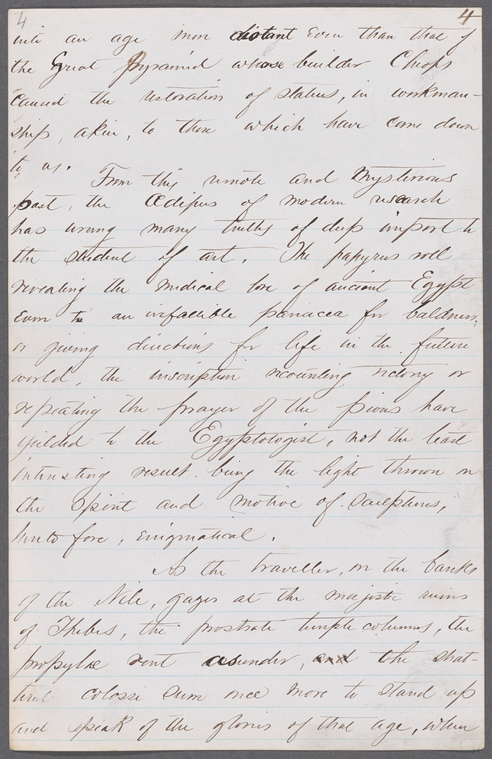 4 4
into an age more distant even than that of
the Great Pyramid whose builder Cheops
caused the restoration of statues, in workman-
ship, akin, to those which have come down
to us.
From this remote and mysterious
past, the Œdipus of modern research
has wrung many truths of deep import to
the student of art. The papyrus roll
revealing the medical lore of ancient Egypt
even to an infallible panacea for baldness,
or giving directions for life in the future
world, the inscription recounting victory or
repeating the prayer of the pious have
yielded to the Egyptologist, not the least
interesting result being the light thrown on
the spirit and motive of sculptures,
hereto fore, enigmatical.
As the traveller, on the banks
of the Nile, gazes at the majestic ruins
of Thebes, the prostrate temple columns, the
propylae rent asunder, and the shat-
tered colossi seem once more to stand up
and speak of the glories of that age, when